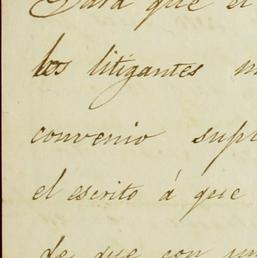 Para que el
los litigantes
convenio supr
el escrito á que
de que con un